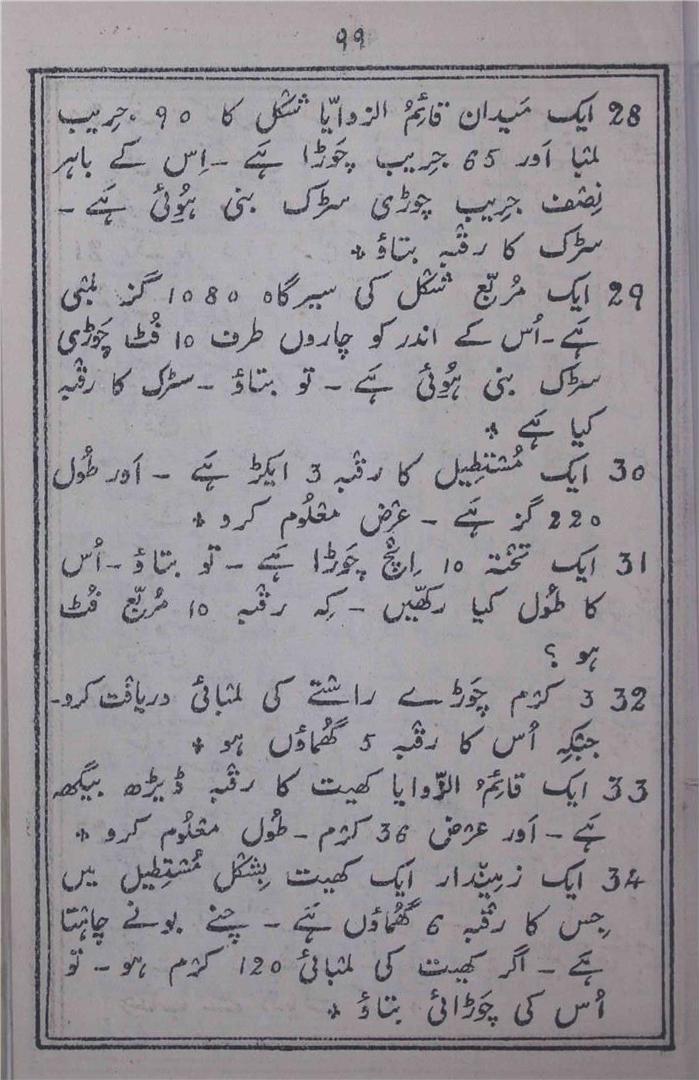 ۹۹
28 ایک مَیدان قائِمُ الزوایّا شکل کا 90 جرِیب
لمبا اَور 65 جرِیب چَوڑا ہَے ۔ اِس کے باہر
نِصْف جرِیب چوڑی سڑک بنی ہُوئی ہَے ۔
سڑک کا رقْبہ بتاؤ *
29 ایک مُربّع شکل کی سیرگاہ 1080 گز لمبی
ہَے ۔ اُس کے اندر کو چاروں طرف 10 فُٹ چَوڑی
سڑک بنی ہُوئی ہَے ۔ تو بتاؤ ۔ سڑک کا رقْبہ
کیا ہَے *
30 ایک مُسْتطِیل کا رقْبہ 3 ایکڑ ہَے ۔ اَور طُول
220 گز ہَے ۔ عرْض معْلُوم کرو *
31 ایک تخْتہ 10 اِنْچ چَوڑا ہَے ۔ تو بتاؤ ۔ اُس
کا طُول کیا رکھّیں ۔ کِہ رقْبہ 10 مُربّع فُٹ
ہو ؟
32 3 کرْم چَوڑے راسْتے کی لمْبائی دریافْت کرو ۔
جبْکِہ اُس کا رقْبہ 5 گھُماؤں ہو *
33 ایک قائِمُ الزّوایا کھیت کا رقْبہ ڈیڑھ بیگھہ
ہَے ۔ اَور عرْض 36 کرْم ۔ طُول معْلُوم کرو *
34 ایک زمِینْدار ایک کھیت بِشکْل مُسْتطِیل میں
جِس کا رقْبہ 6 گھُماؤں ہَے ۔ چنے بونے چاہْتا
ہَے ۔ اگر کھیت کی لمْبائی 120 کرْم ہو ۔ تو
اُس کی چَوڑائی بتاؤ *